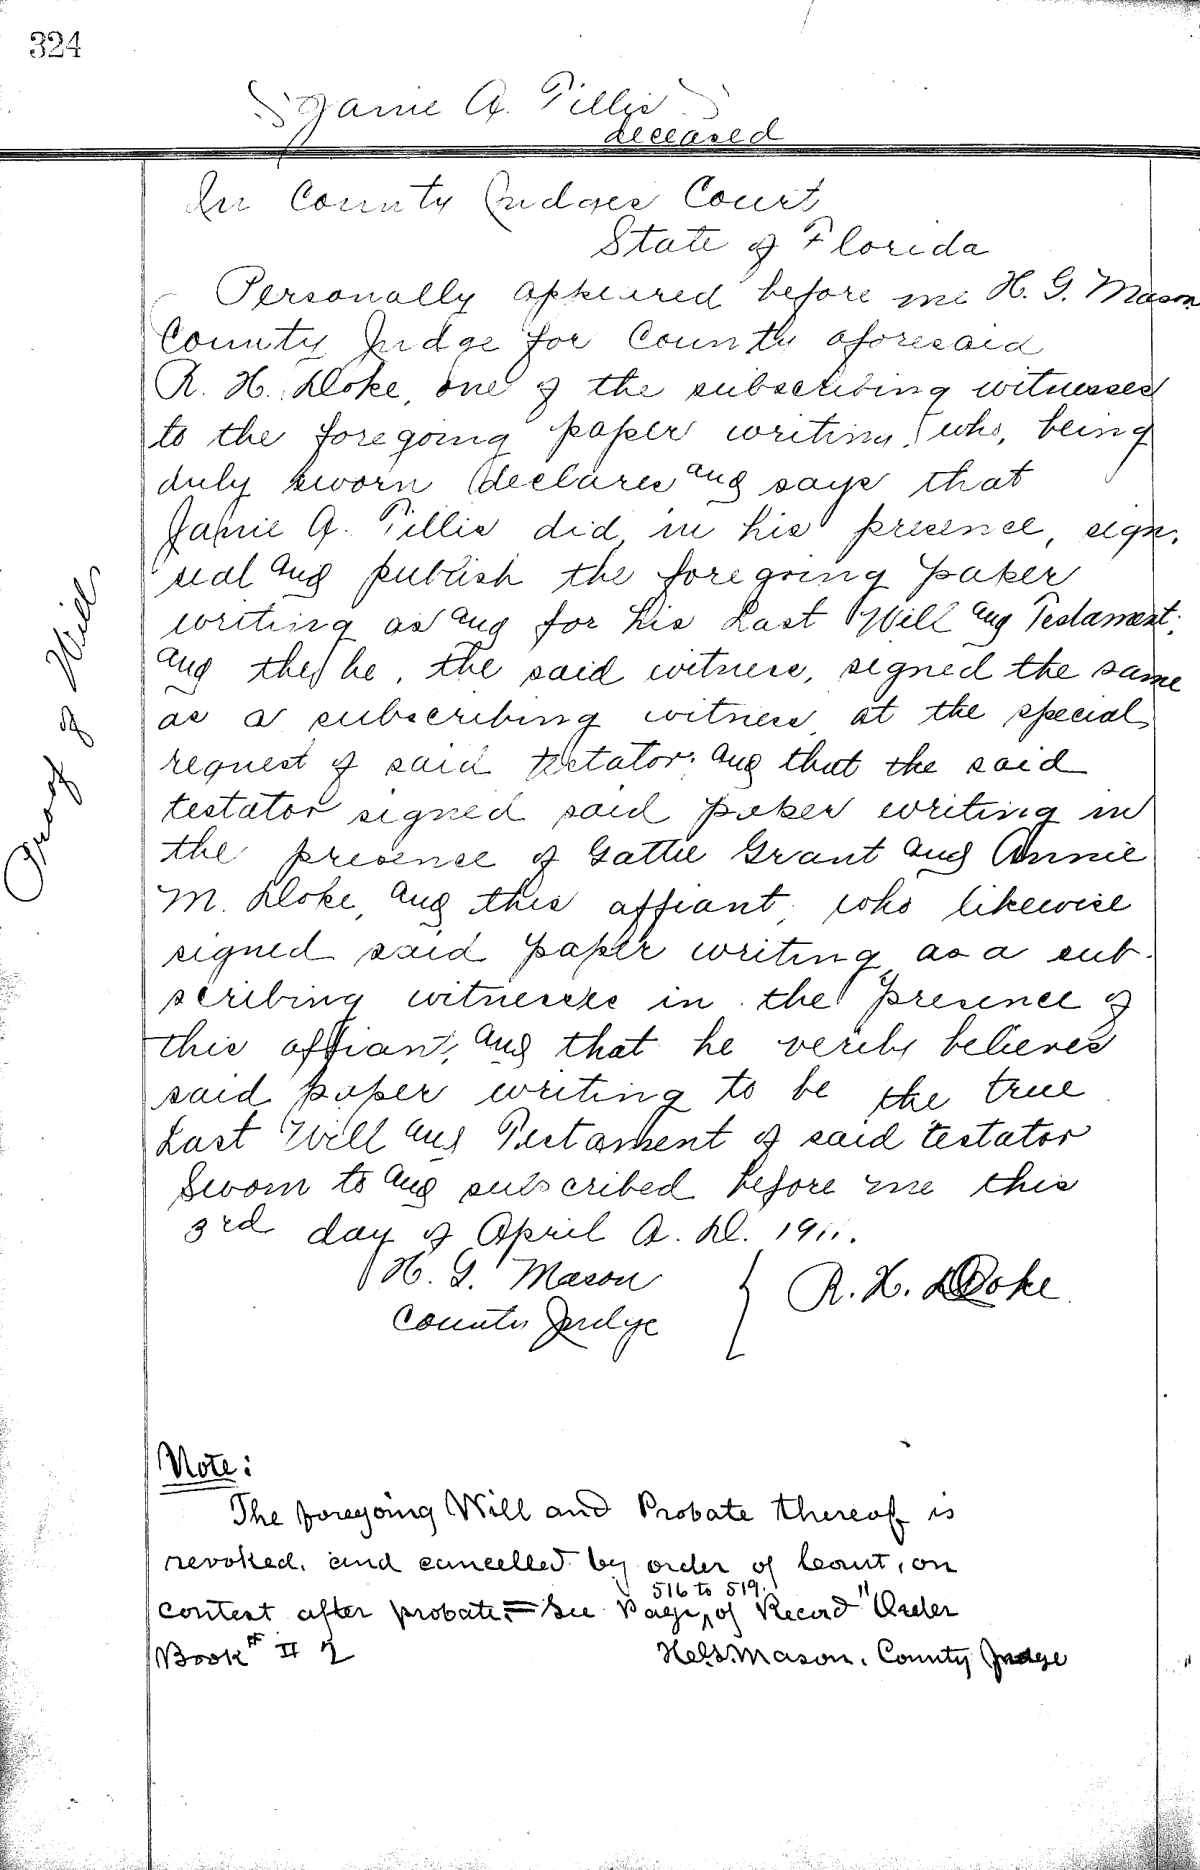 324
Janie A. Tillis
deceased
In County Judges Court
State of Florida
Personally appeared before me H. G. Mason
County Judge for County aforesaid
R. H. Doke, one of the subscribing witnesses
to the foregoing paper writing, who, being
duly sworn declares and says that
Janie A. Tillis did, in his presence, sign,
seal and publish the foregoing paper
writing as and for his Last Will and Testament;
and the he, the said witness, signed the same
as a subscribing witness, at the special
request of said testator; and that the said
testator signed said paper writing in
the presence of Gattie Grant and Annie
M. Doke, and this affiant, who likewise
signed said paper writing as a sub-
scribing witnesses in the presence of
this affiant, and that he verily believes
said paper writing to be the true
Last Will and Testament of said testator
Sworn to and subscribed before me this
3rd day of April A. D. 1911.
H. G. Mason } R. H. Doke
County Judge
Proof of Will
Note:
The foregoing Will and Probate thereof is
revoked, and cancelled by order of Court, on
contest after probate. = See Page, 516 to 519. of Record "Order
Book" # II 2
H. G. Mason, County Judge